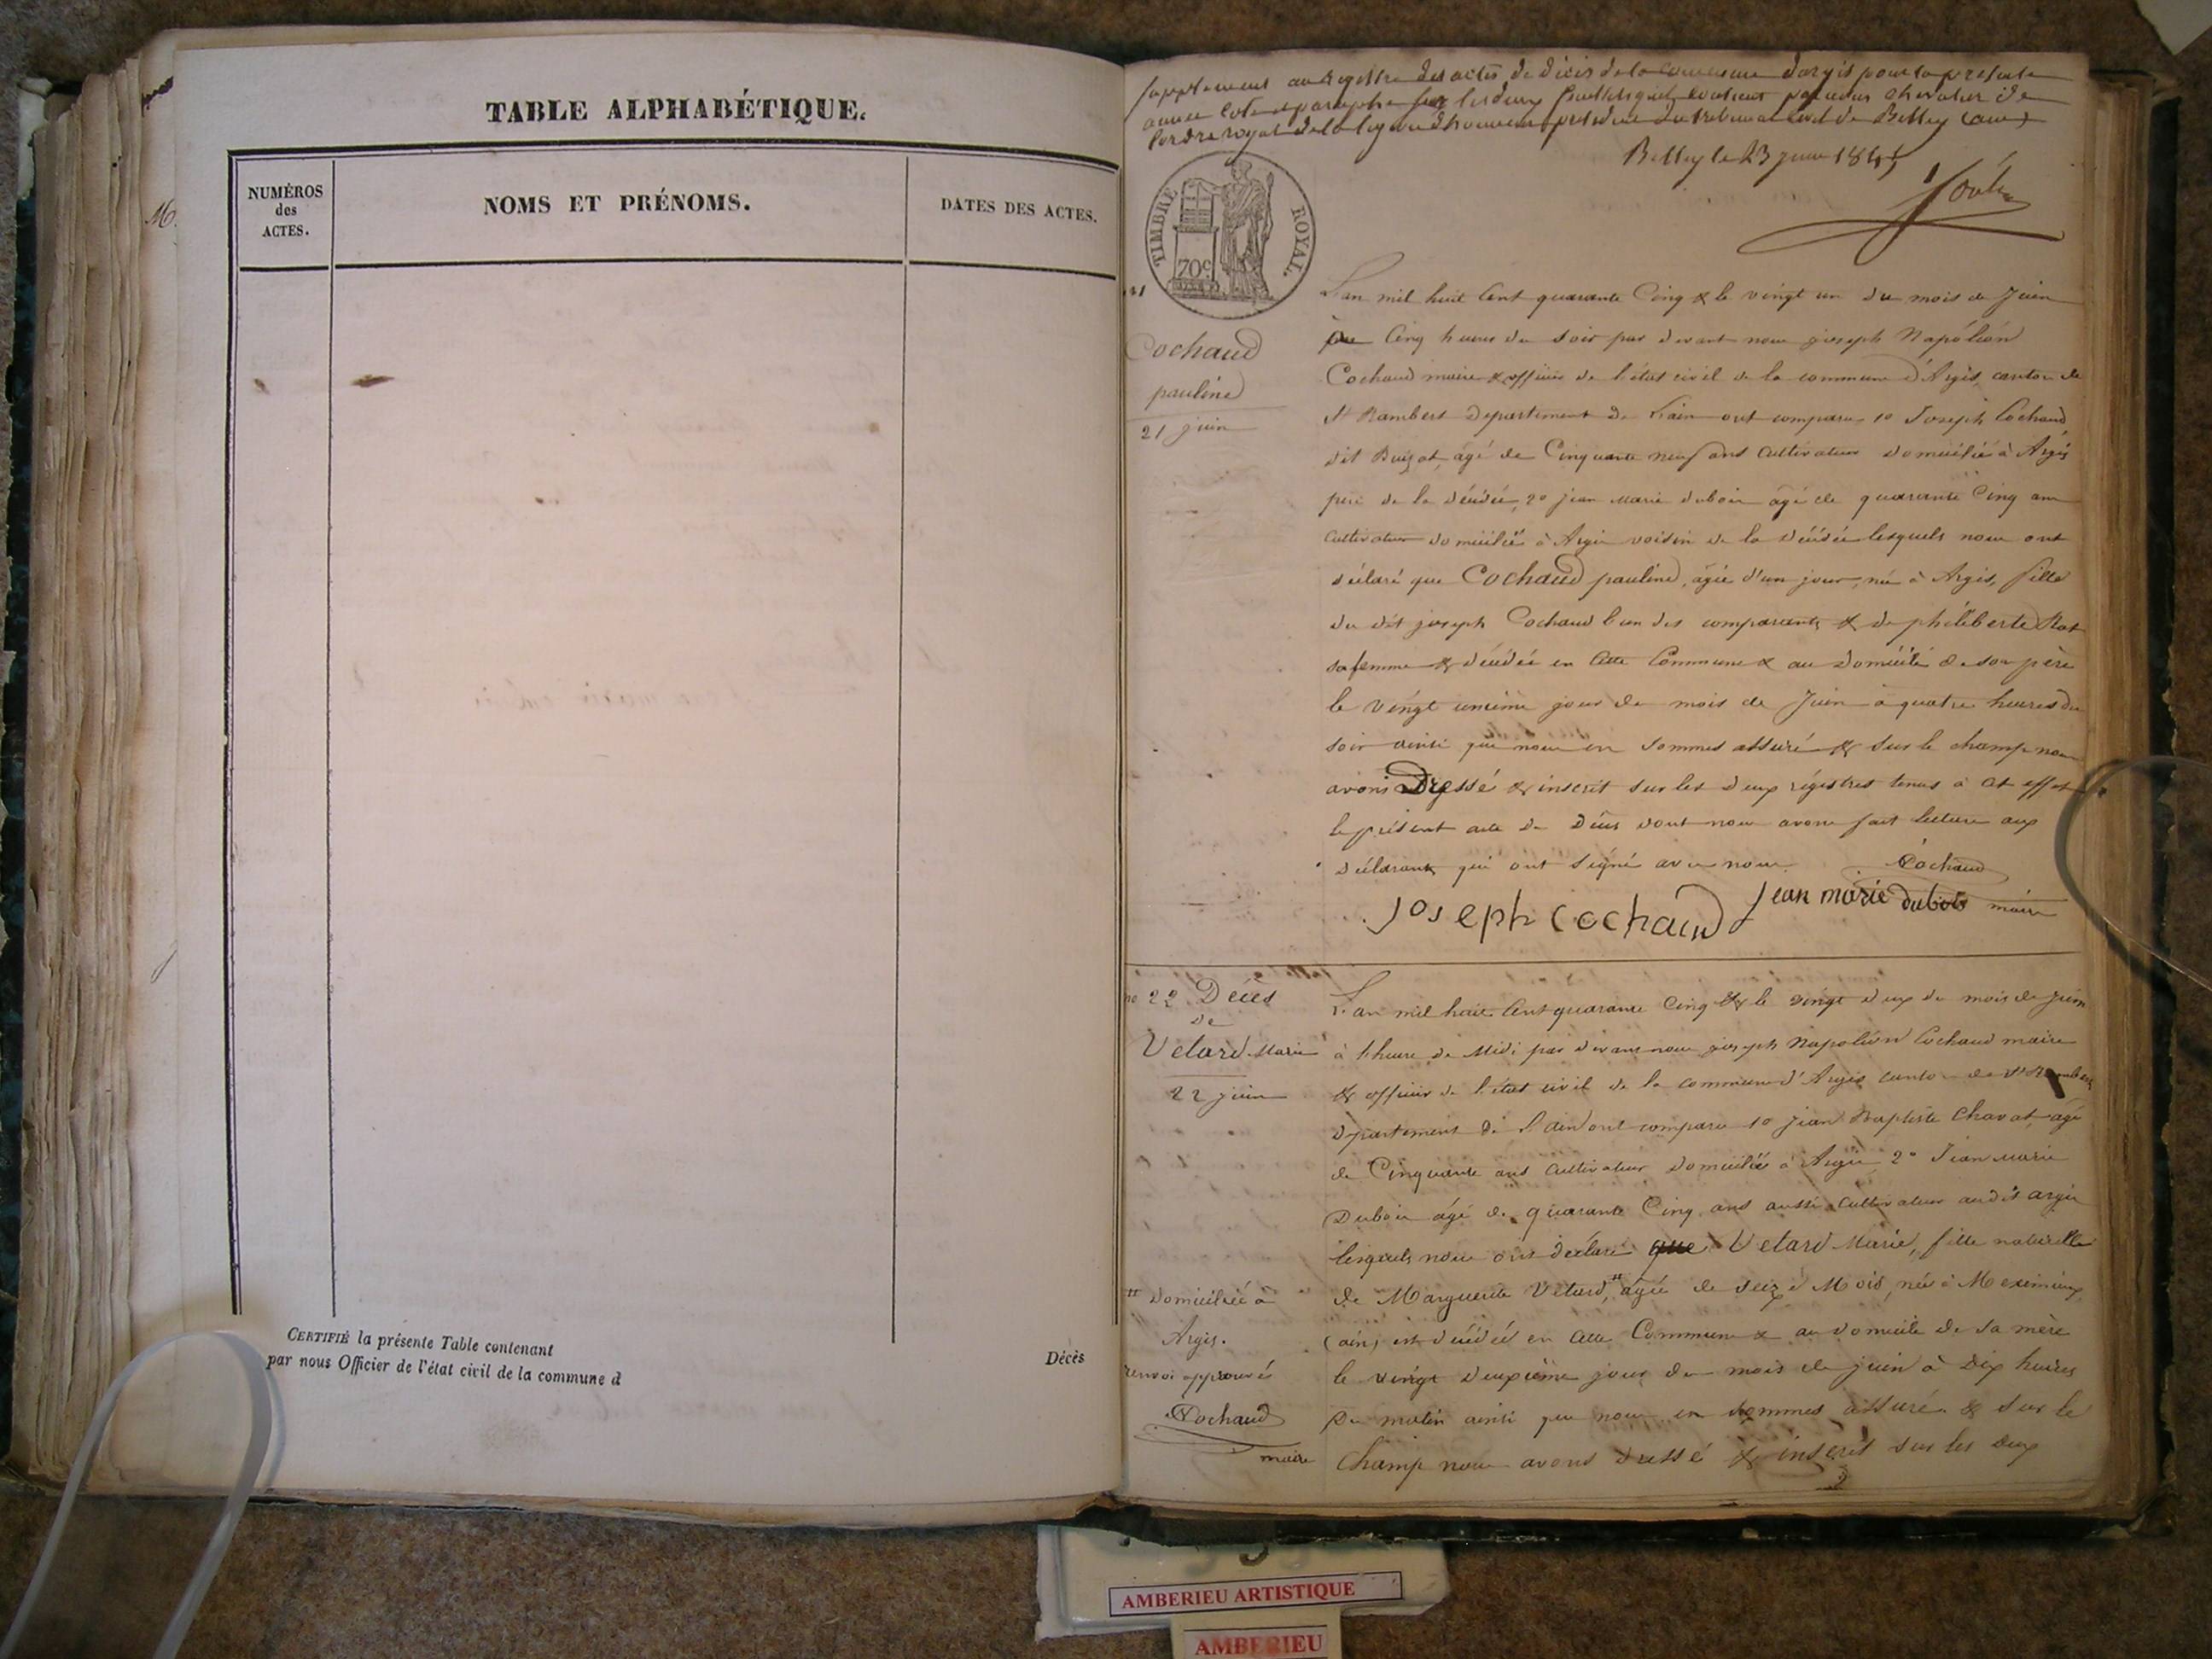 TABLE ALPHABÉTIQUE.
NUMÉROS
des
ACTES.
NOMS ET PRÉNOMS.
DATES DES ACTES.
CERTIFIÉ la présente Table contenant
par nous Officier de l'état civil de la commune d
Décès
M.
Supplément au Registre des actes de décès de la commune d'argis pour la présente
année coté et paraphé sur les deux feuillets qu'il contient par nous chevalier de
l'ordre royal de la legion d'honneur président du tribunal civil de Belley (ain)
Belley le 23 juin 1845
TIMBRE ROYAL.
70c
21
Cochaud
pauline
21 juin
L'an mil huit Cent quarante Cinq & le vingt un du mois de Juin
à Cinq heures du soir par devant nous joseph Napoléon
Cochaud maire & officier de l'état civil de la commune d'Argis, canton de
St Rambert Departement de L'ain ont comparu 1o Joseph Cochaud
dit Buizat, agé de Cinquante neuf ans Cultivateur domicilié à Argis
père de la décédée, 2o jean Marie dubois agé de quarante Cinq ans
Cultivateur domicilié à Argis voisin de la décédée lesquels nous ont
déclaré que Cochaud pauline, agée d'un jour, née à Argis, fille
du dit joseph Cochaud l'un des comparants & de philiberte Rat
sa femme & décédée en Cette Commune & au domicile de son père
le vingt unieme jour du mois de Juin à quatre heures du
soir ainsi que nous en sommes assuré & sur le champ nous
avons Dressé & inscrit sur les deux régistres tenus à cet effet
le présent acte de Décès dont nous avons fait lecture aux
déclarants qui ont signé avec nous.
Cochaud
joseph cochaud
jean marie dubois
maire
no 22 Décès
de
Vetard Marie
22 juin
L'an mil huit Cent quarante Cinq & le vingt deux du mois de juin
à l'heure de Midi par devant nous joseph Napoléon Cochaud maire
& officier de l'état civil de la commune d'Argis canton de St Rambert
département de L'ain ont comparu 1o jean Baptiste Chavat, agé
de Cinquante ans Cultivateur domicilié à Argis 2o Jean Marie
Dubois agé de quarante Cinq ans aussi Cultivateur audit argis
lesquels nous ont déclaré que Vetard Marie, fille naturelle
de Marguerite Vetard, # agée de seize Mois, née à Meximieux,
(ain) est décédée en Cette Commune & au domicile de sa mère
le vingt deuxième jour du mois de juin à Dix heures
Du matin ainsi que nous en sommes assuré & sur le
champ nous avons dressé & inscrit sur les deux
# Domiciliée à
Argis.
renvoi approuvé
Cochaud
maire
AMBERIEU ARTISTIQUE
AMBERIEU